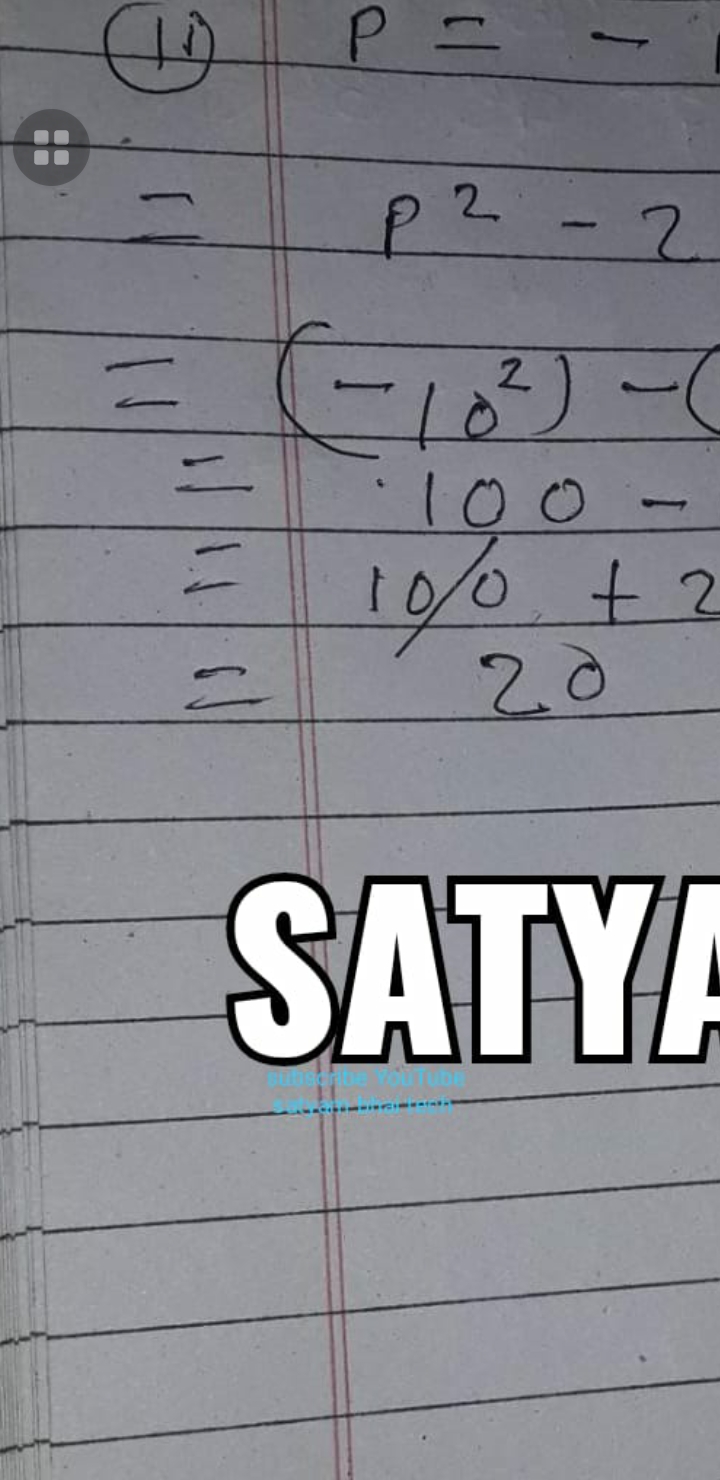 (ii) P = -
= P² - 2
= (-10²) - (
= 100 -
= 100 + 2
= 20
SATYA
subscribe YouTube
satyam bhai tech